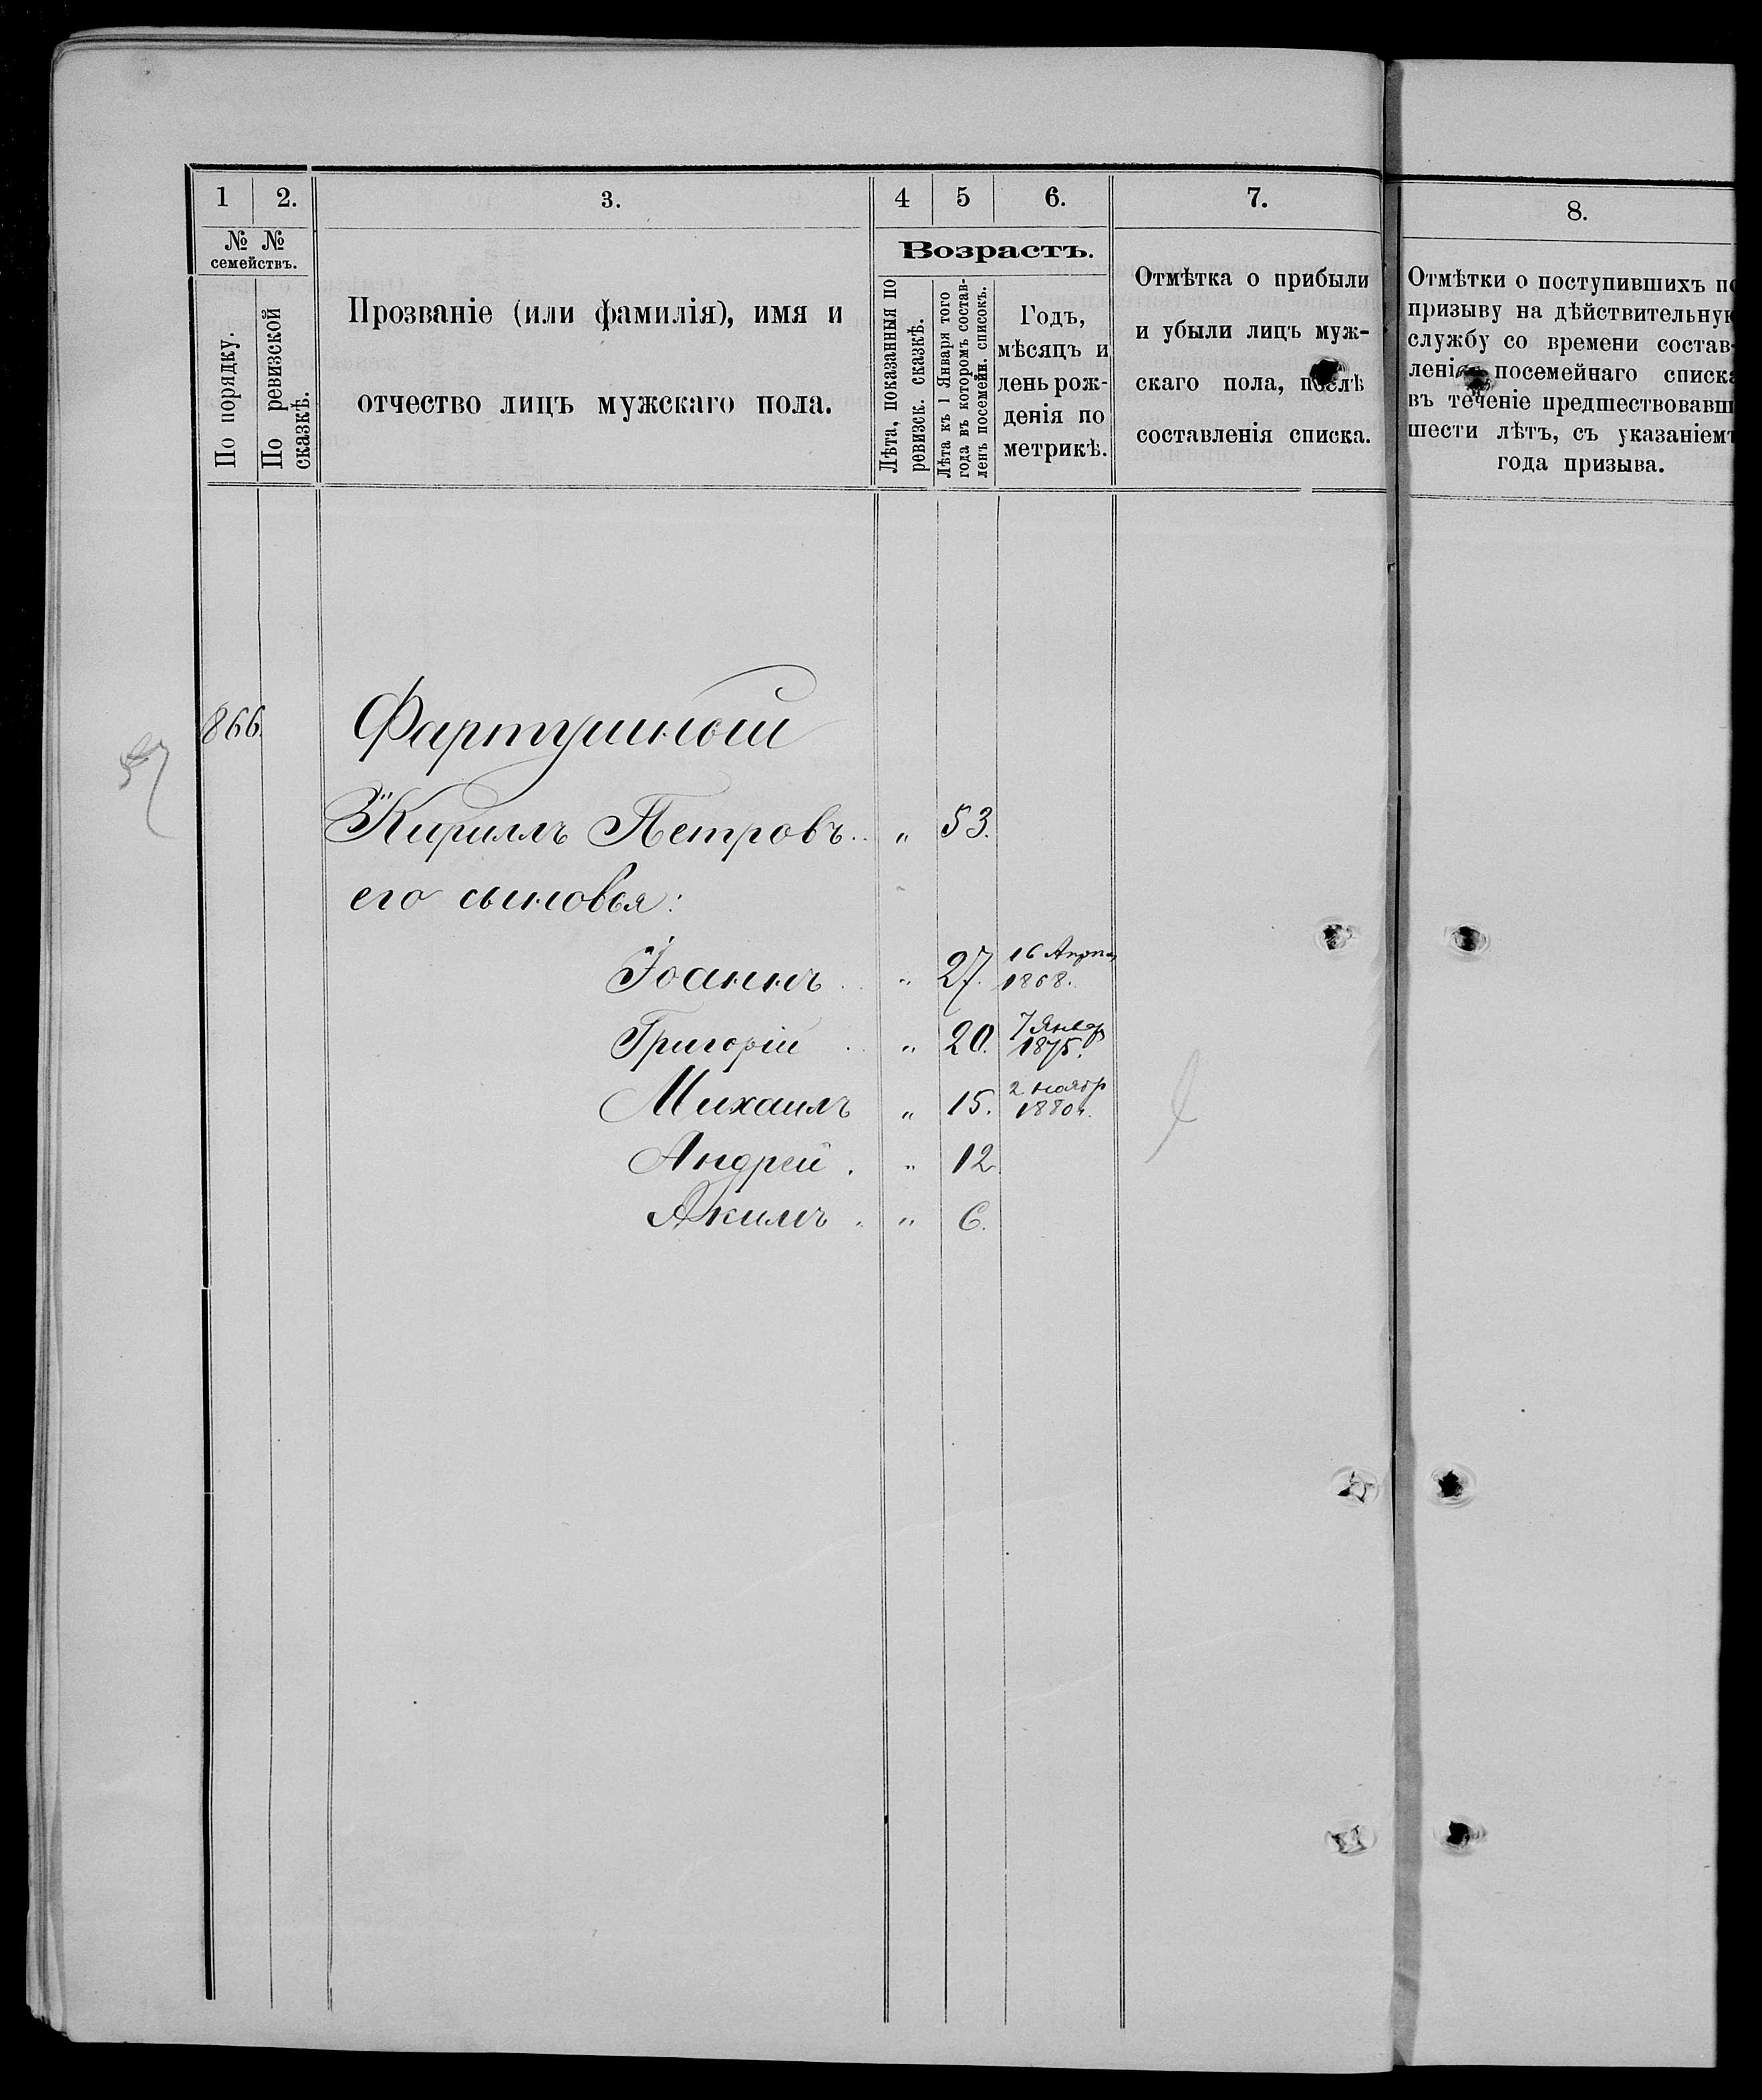 1 2. 3. 4 5 6. 7. 8.
№ № семействъ.
По порядку.
По ревизской сказкѣ.
Прозваніе (или фамилія), имя и
отчество лицъ мужскаго пола.
Возрастъ.
Лѣта, показанныя по
ревизск. сказкѣ.
Лѣта къ 1 Января того
года въ которомъ состав-
ленъ посемейн. списокъ.
Годъ,
мѣсяцъ и
день рож-
денія по
метрикѣ.
Отмѣтка о прибыли
и убыли лицъ муж-
скаго пола, послѣ
составленія списка.
Отмѣтки о поступившихъ по
призыву на дѣйствительную
службу со времени состав-
ленія посемейнаго списка
въ теченіе предшествовавш
шести лѣтъ, съ указаніемъ
года призыва.
866. Фартушный
Кирилъ Петровъ.. „ 53.
его сыновья:
Іоаннъ .. „ 27. 16 Апрѣ 1868.
Григорій .. „ 20. 7 Январ 1875.
Михаилъ „ 15. 2 Ноябр 1880 г.
Андрей . „ 12.
Акимъ . „ 6.